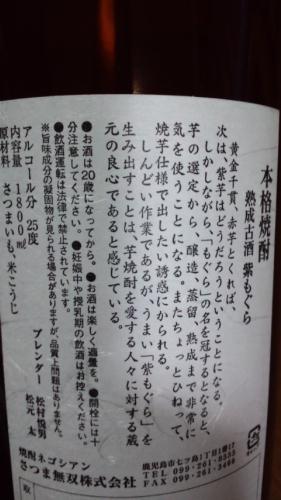 本格焼酎
熟成古酒 紫もぐら
黄金千貫、赤芋とくれば、
次は、紫芋はどうだろうということになる。
しかしながら、「もぐら」の名を冠するとなると、
芋の選定から、醸造、蒸留、熟成まで非常に
気を使うことになる。またちょっとひねって、
焼芋仕様で出したい誘惑にかられる。
しんどい作業であるが、うまい「紫もぐら」を
生み出すことは、芋焼酎を愛する人々に対する蔵
元の良心であると感じている。
●お酒は20歳になってから。●お酒は楽しく適量を。●開栓には十
分注意してください。●妊娠中や授乳期の飲酒はお控えください。
●飲酒運転は法律で禁止されています。
※旨味成分の凝固物が見られる場合がありますが、品質上問題はありません。
アルコール分 25度
内容量 1800㎖
原材料 さつまいも、米こうじ
ブレンダー 松村悦男
松元 太
焼酎ネゴシアン
さつま無双株式会社
鹿児島市七ツ島1丁目1番17
TEL 099-261-8555
FAX 099-261-3466